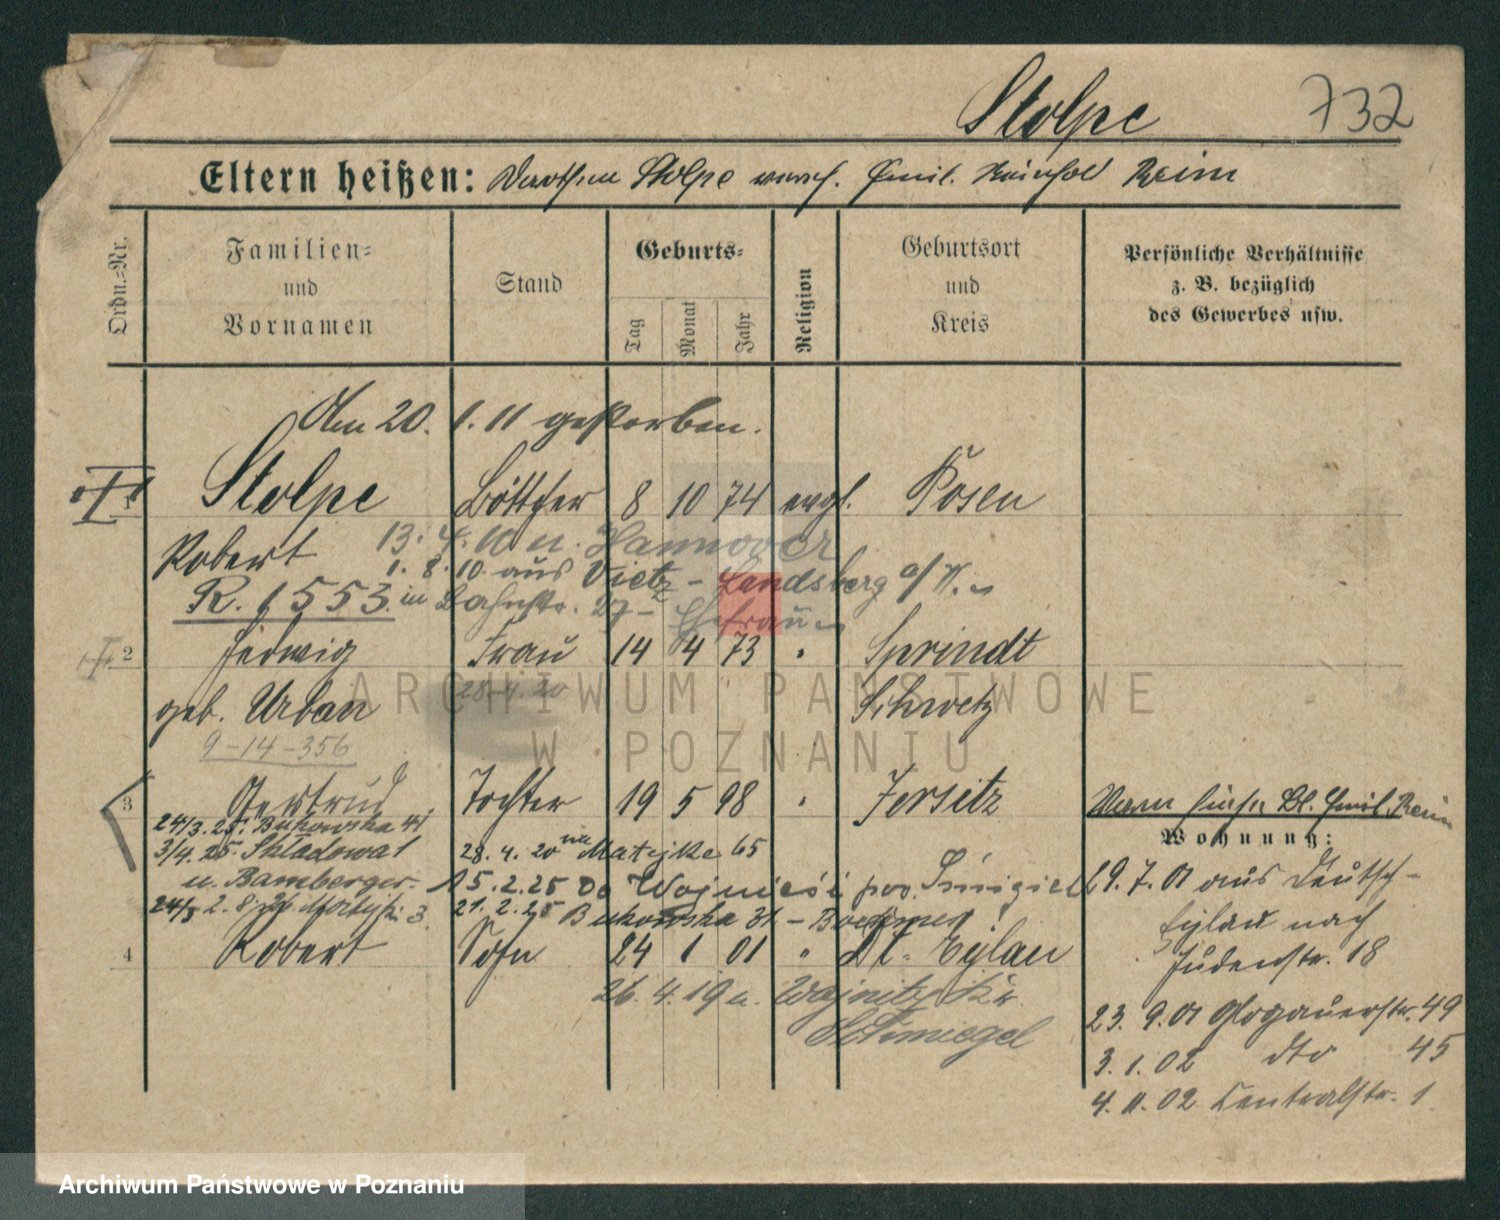 Stolpe 732
Eltern heißen: Dorothea Stolpe versch. Emil Reinhold Reim
Ordn.=Nr.
Familien=
und
Vornamen
Stand
Geburts=
Tag
Monat
Jahr
Religion
Geburtsort
und
Kreis
Persönliche Verhältnisse
z. B. bezüglich
des Gewerbes usw.
Am 20. 1. 11 gestorben.
1 Stolpe Böttcher 8 10 74 evgl. Posen
Robert 13. 4. 10 n. Hannover
1. 8. 10. aus Vietz - Landsberg a/W.
R. 1553. in Bahnstr. 27 - Ehefrau
2 Hedwig Frau 14 4 73 " Sprindt
28. 4. 20
geb. Urban Schwetz
9-14-356
3 Gertrud Tochter 19 5 98 " Jersitz
24/3. 25. Bukowska 41
3/4. 25. Składowa 1 28. 4. 20 Matejke 65
u. Bamberger. 15. 2. 25 Do Wojnieści pow. Śmigiel
24/3 2. 8. 3. 21. 2. 25 Bukowska 31 -
4 Robert Sohn 24 1 01 " Dt. Eylau
26. 4. 19 n. Wojnitz Kr.
Schmiegel
Emil. Reim
Wohnung:
29. 7. 01 aus Deutsch-
Eylau nach
Judenstr. 18
23. 9. 01 Glogauerstr. 49
3. 1. 02 dto 45
4. 11. 02 Centralstr. 1
ARCHIWUM PAŃSTWOWE
W POZNANIU
Archiwum Państwowe w Poznaniu